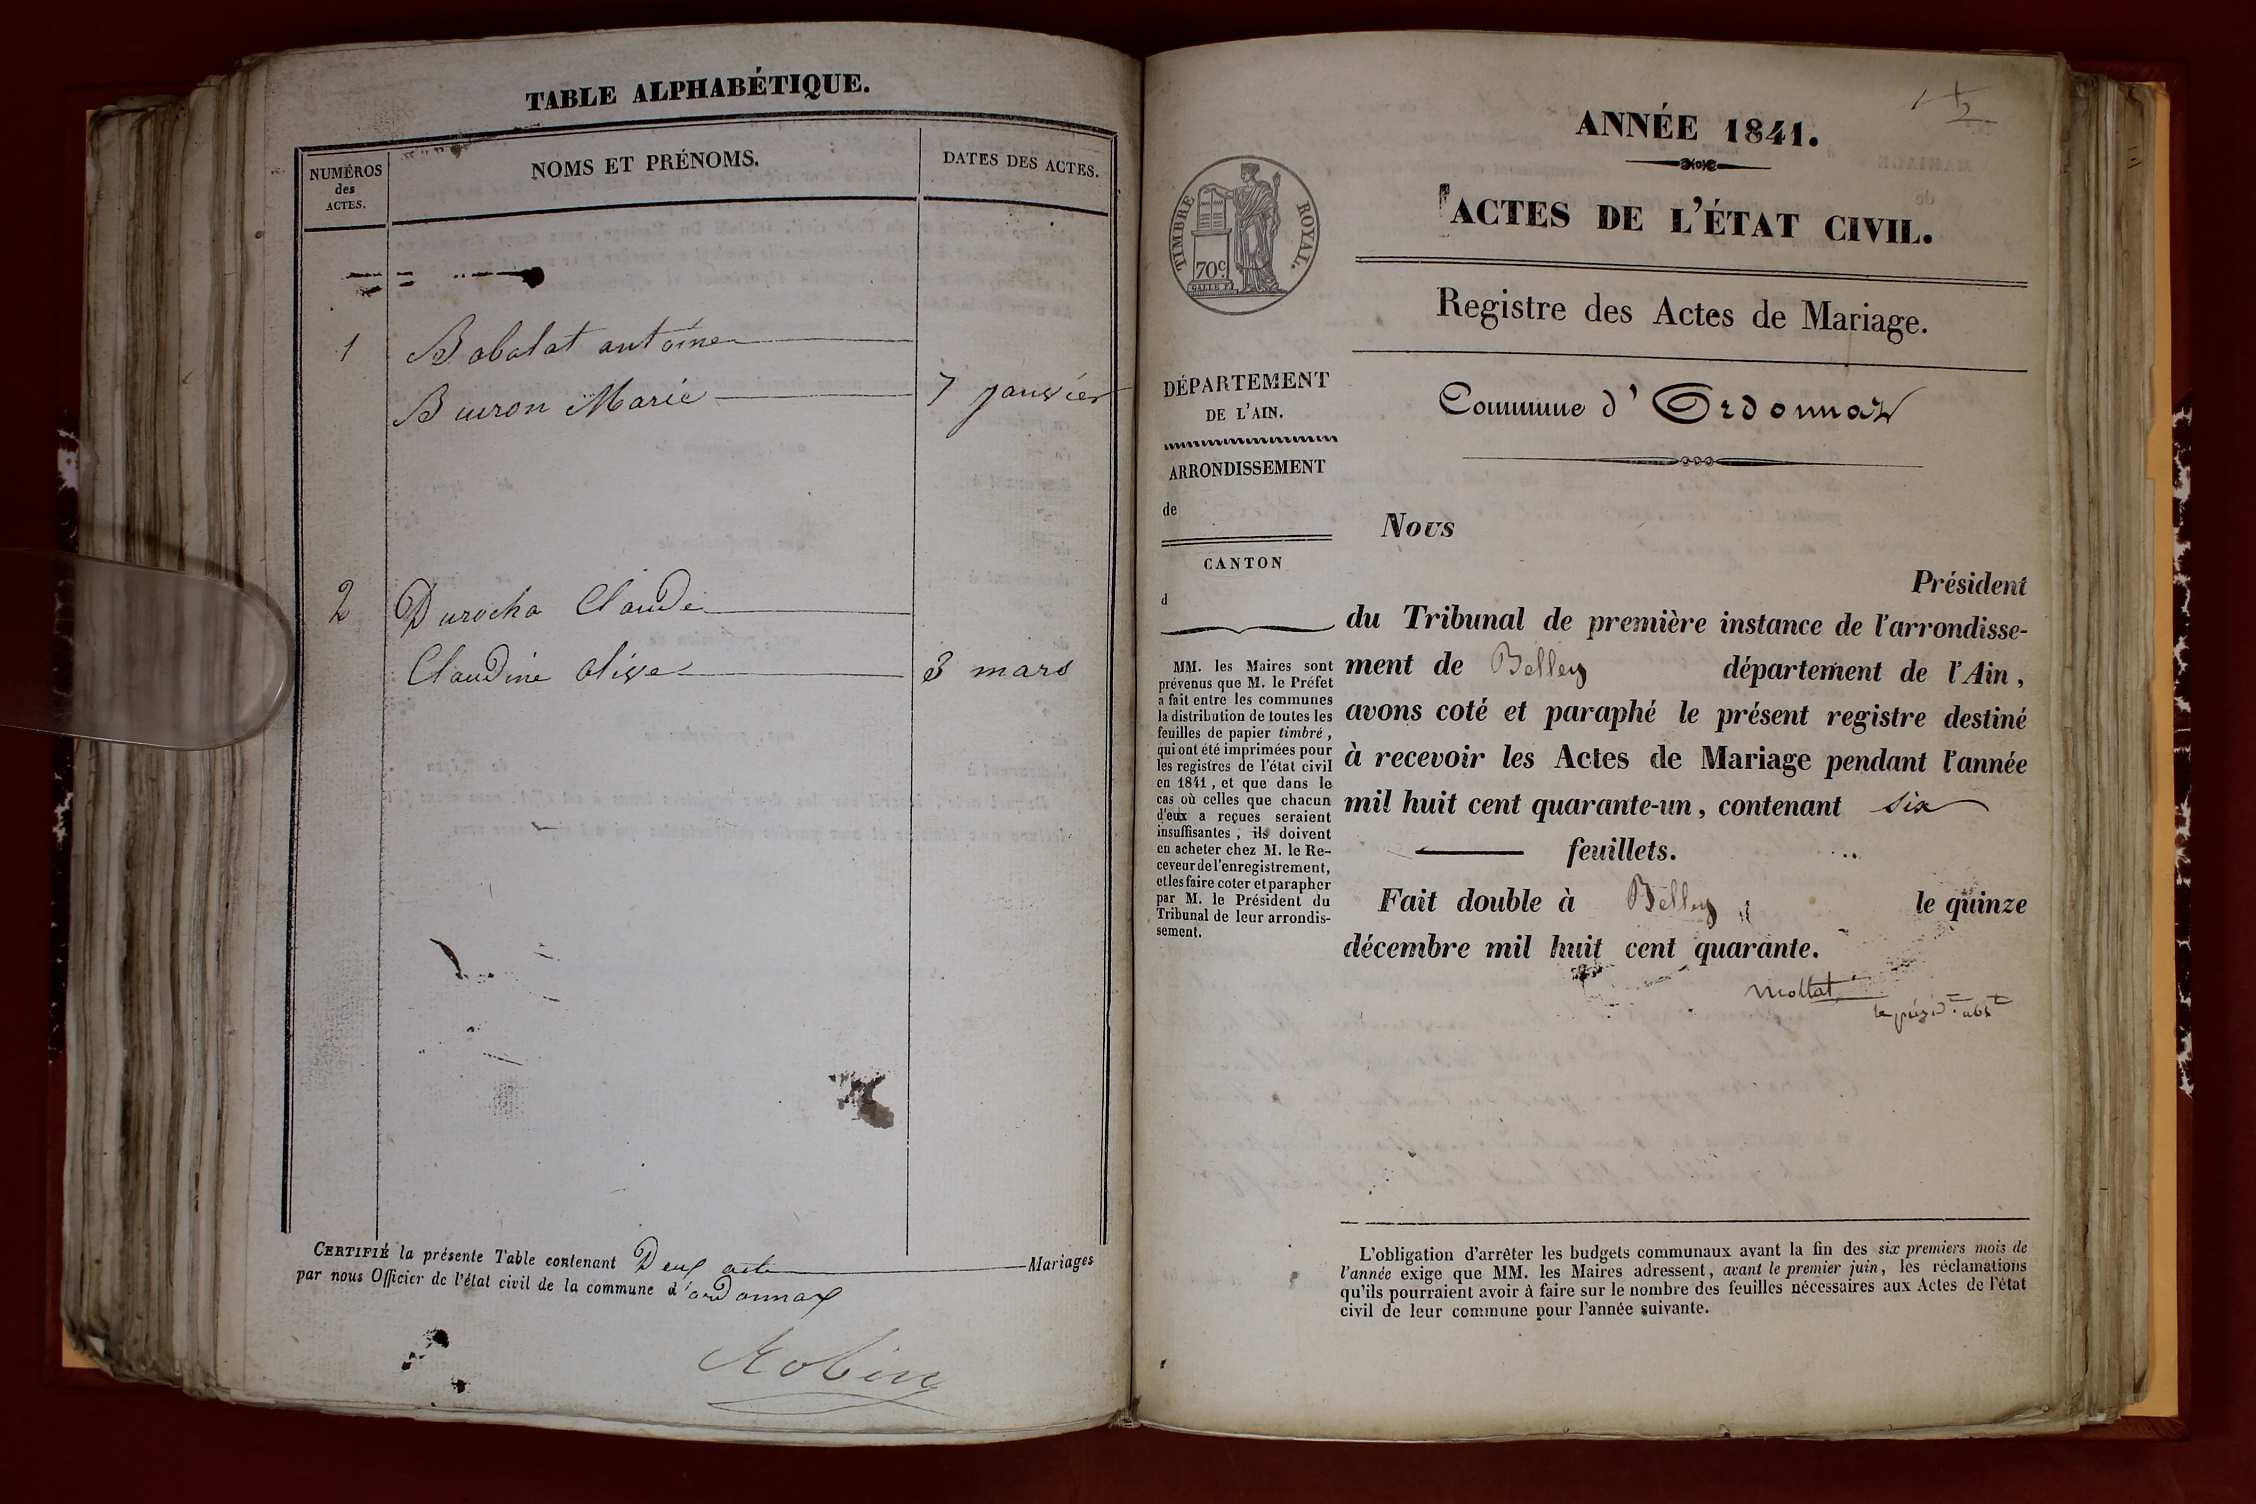 TABLE ALPHABÉTIQUE.
NUMÉROS
des
ACTES.
NOMS ET PRÉNOMS.
DATES DES ACTES.
1 Babolat antoine
Buiron Marie 7 janvier
2 Durocha Claude
Claudine olive 3 mars
CERTIFIÉ la présente Table contenant Deux acte Mariages
par nous Officier de l'état civil de la commune d'ordonnax
Robin
ANNÉE 1841.
ACTES DE L'ÉTAT CIVIL.
TIMBRE ROYAL.
70c
Registre des Actes de Mariage.
Commune d'Ordonnaz
DÉPARTEMENT
DE L'AIN.
ARRONDISSEMENT
de
CANTON
d
MM. les Maires sont
prévenus que M. le Préfet
a fait entre les communes
la distribution de toutes les
feuilles de papier timbré,
qui ont été imprimées pour
les registres de l'état civil
en 1841, et que dans le
cas où celles que chacun
d'eux a reçues seraient
insuffisantes, ils doivent
en acheter chez M. le Re-
ceveur de l'enregistrement,
et les faire coter et parapher
par M. le Président du
Tribunal de leur arrondis-
sement.
Nous
Président
du Tribunal de première instance de l'arrondisse-
ment de Belley département de l'Ain,
avons coté et paraphé le présent registre destiné
à recevoir les Actes de Mariage pendant l'année
mil huit cent quarante-un, contenant six
feuillets.
Fait double à Belley le quinze
décembre mil huit cent quarante.
Mollat
le présid.t abs.t
L'obligation d'arrêter les budgets communaux avant la fin des six premiers mois de
l'année exige que MM. les Maires adressent, avant le premier juin, les réclamations
qu'ils pourraient avoir à faire sur le nombre des feuilles nécessaires aux Actes de l'état
civil de leur commune pour l'année suivante.